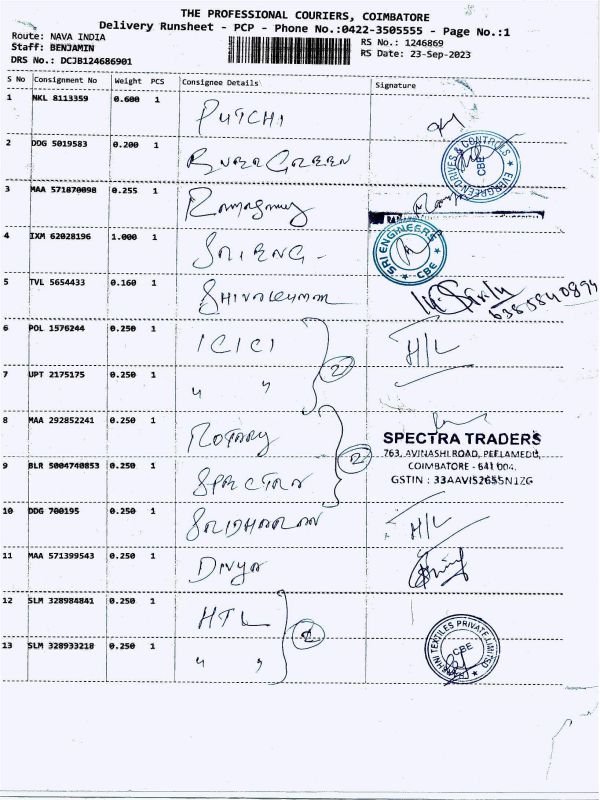 THE PROFESSIONAL COURIERS, COIMBATORE
Delivery Runsheet - PCP - Phone No.:0422-3505555 - Page No.:1
Route: NAVA INDIA
RS No.: 1246869
Staff: BENJAMIN
RS Date: 23-Sep-2023
DRS No.: DCJB124686901
S No Consignment No Weight PCS Consignee Details Signature
1 NKL 8113359 0.600 1
2 DDG 5019583 0.200 1 EVERGREEN
EVERGREEN DRIVES & CONTROLS CBE
3 MAA 571870098 0.255 1 Ramasamy
4 IXM 62028196 1.000 1 SRI ENG-
SRI ENGINEERS CBE
5 TVL 5654433 0.160 1 SHIVAKUMAR
6385840894
6 POL 1576244 0.250 1 ICICI H/L
2
7 UPT 2175175 0.250 1 " "
8 MAA 292852241 0.250 1 ROTARY
SPECTRA TRADERS
763, AVINASHI ROAD, PEELAMEDU,
2
9 BLR 5004740853 0.250 1 SPECTRA
COIMBATORE - 641 004.
GSTIN : 33AAVIS2655N1ZG
10 DDG 700195 0.250 1 SRIDHARAN H/L
11 MAA 571399543 0.250 1 DIVYA
12 SLM 328984841 0.250 1 HTL
2
13 SLM 328933218 0.250 1 " "
TEXTILES PRIVATE LIMITED CBE